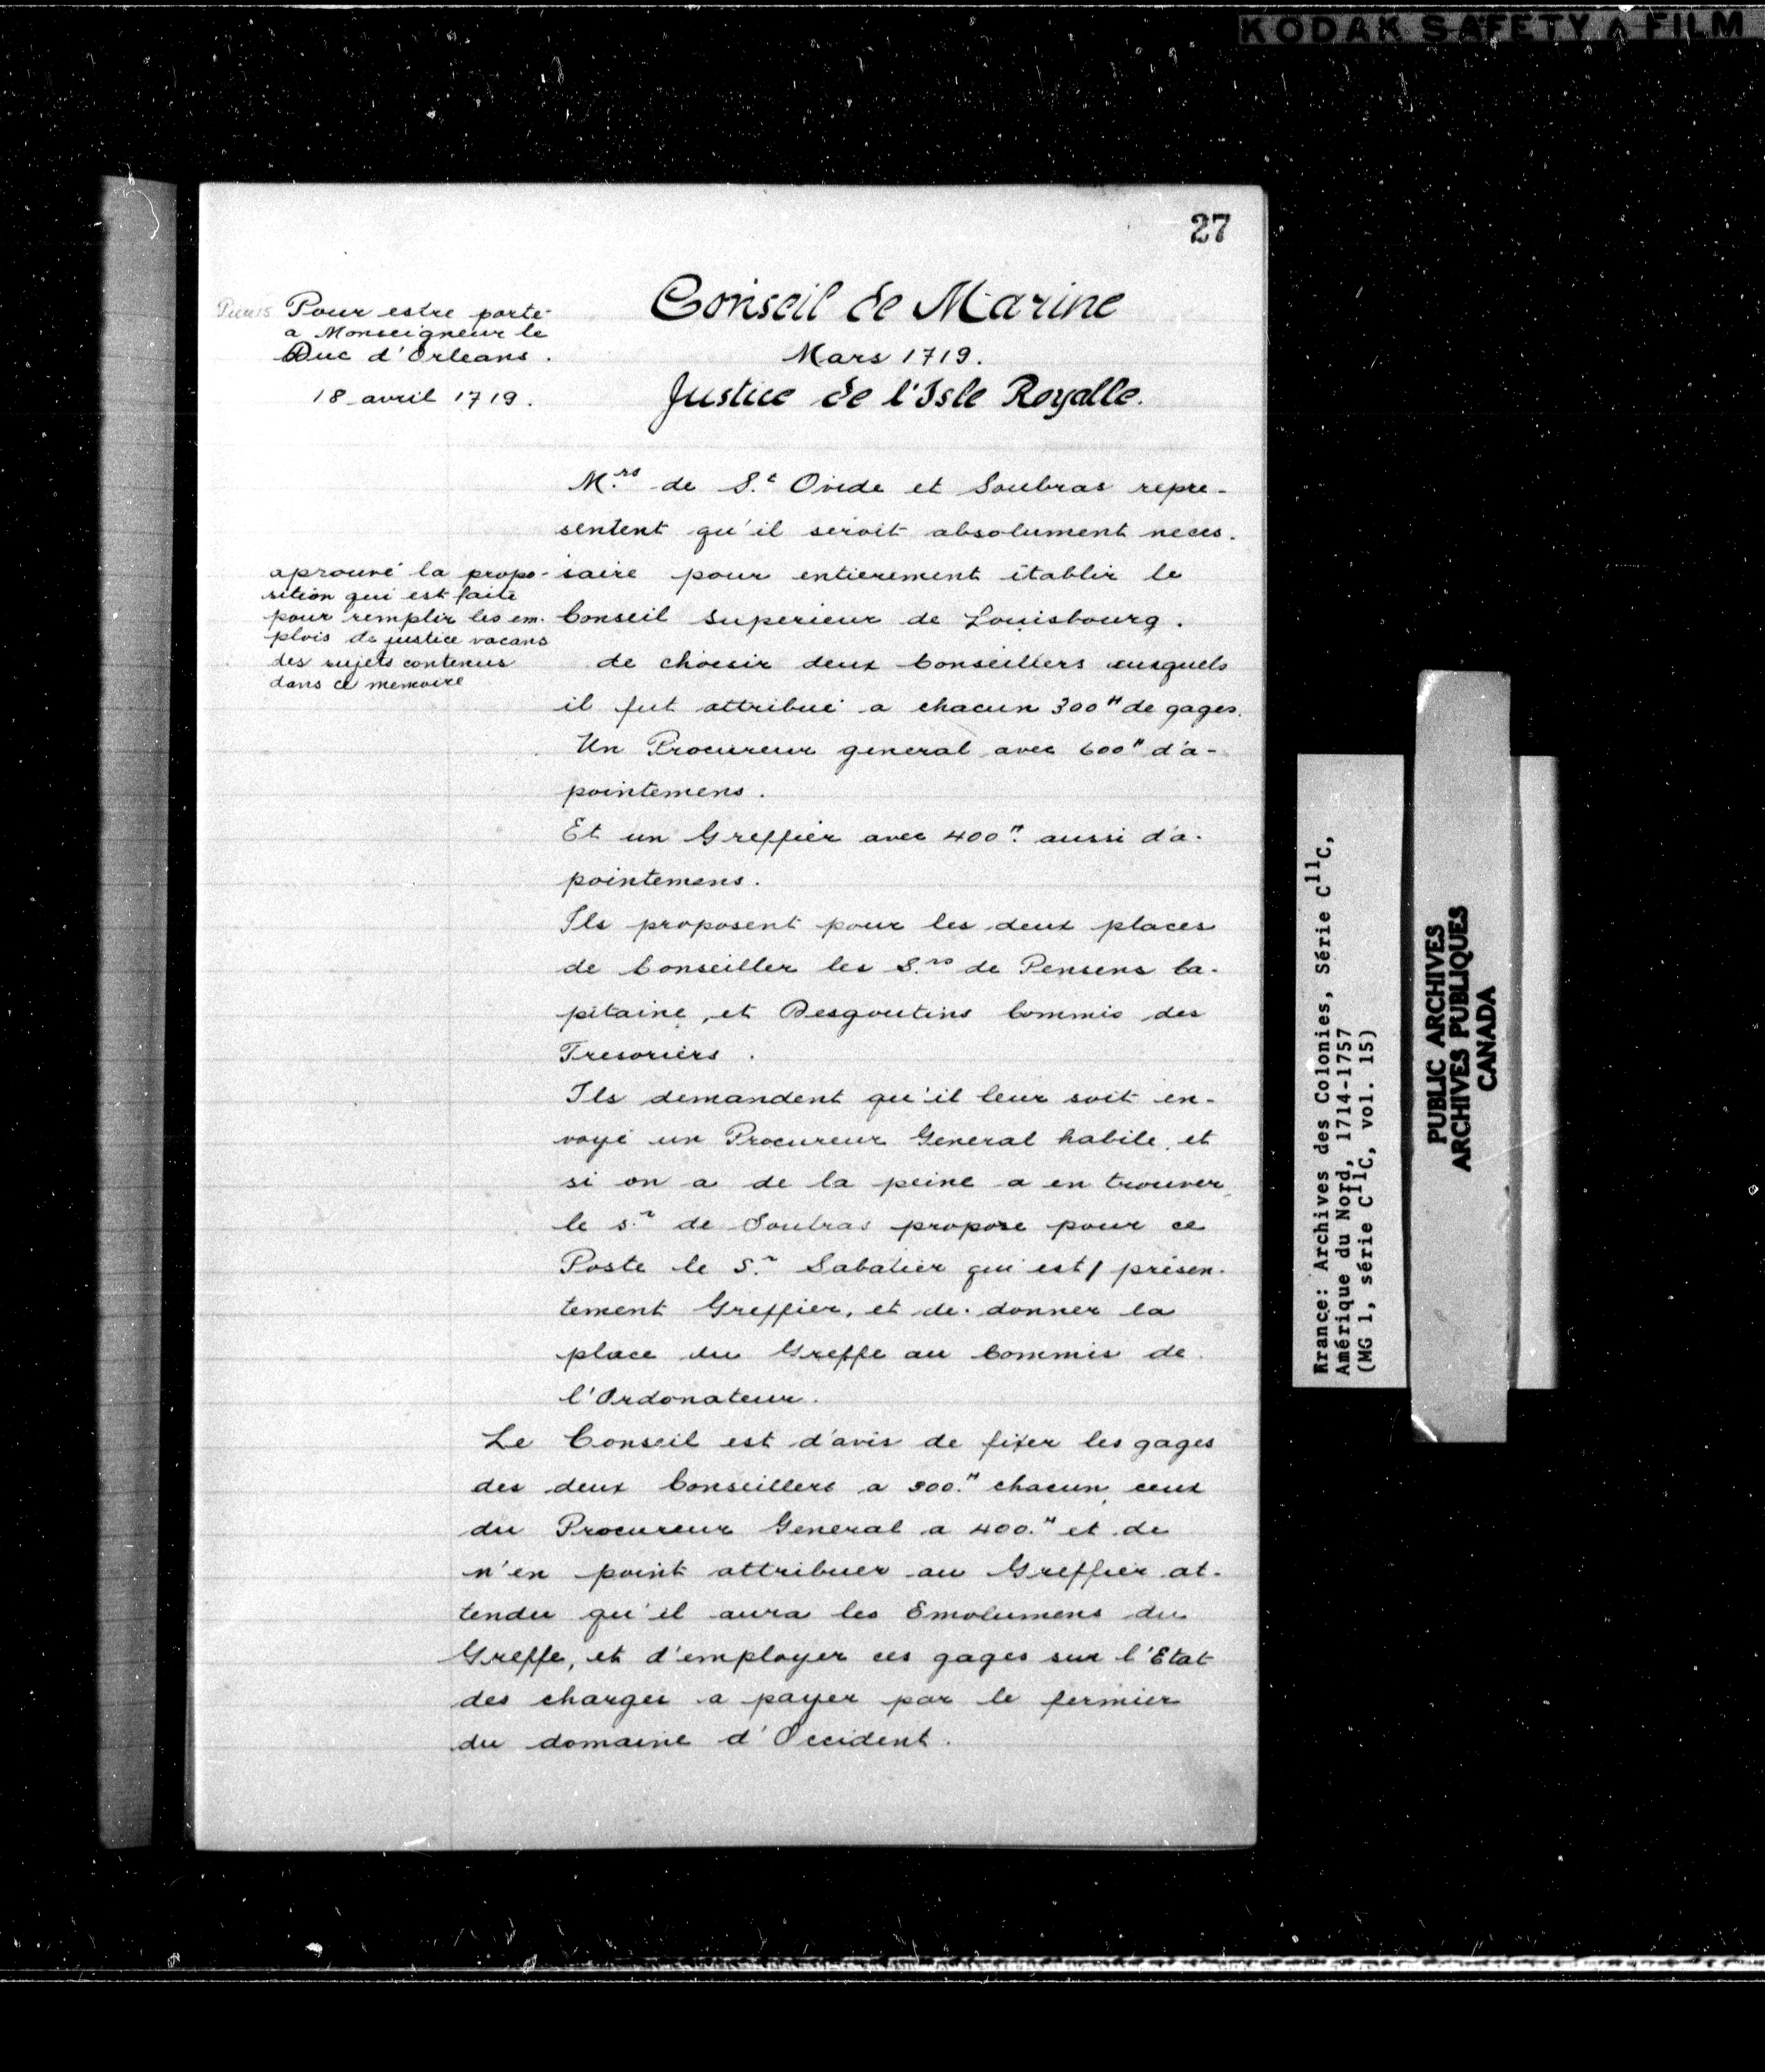 KODAK SAFETY FILM
27
Pour estre porté
a Monseigneur le
Duc d'Orleans.
18 avril 1719.
Conseil de Marine
Mars 1719.
Justice de l'Isle Royalle.
M.rs de S.t Ovide et Soubras repre-
sentent qu'il seroit absolument neces-
saire pour entierement établir le
Conseil superieur de Louisbourg.
de choisir deux Conseillers ausquels
il fut attribué a chacun 300# de gages.
Un Procureur general avec 600# d'a-
pointemens.
Et un Greffier avec 400# aussi d'a-
pointemens.
aprouvé la propo-
sition qui est faite
pour remplir les em-
plois de justice vacans
des sujets contenus
dans ce memoire
Ils proposent pour les deux places
de Conseiller les S.rs de Pensens Ca-
pitaine, et Desgoutins Commis des
Tresoriers.
Ils demandent qu'il leur soit en-
voyé un Procureur General habile, et
si on a de la peine a en trouver,
le s.r de Soubras propose pour ce
Poste le S.r Sabatier qui est présen-
tement Greffier, et de donner la
place du Greffe au Commis de
l'Ordonateur.
Le Conseil est d'avis de fixer les gages
des deux Conseillers a 300.# chacun, ceux
du Procureur General a 400.# et de
n'en point attribuer au Greffier at-
tendu qu'il aura les Emolumens du
Greffe, et d'employer ces gages sur l'Etat
des charges a payer par le fermier
du domaine d'Occident.
Krance: Archives des Colonies, Série C11C,
Amérique du Nord, 1714-1757
(MG 1, série C11C, vol. 15)
PUBLIC ARCHIVES
ARCHIVES PUBLIQUES
CANADA